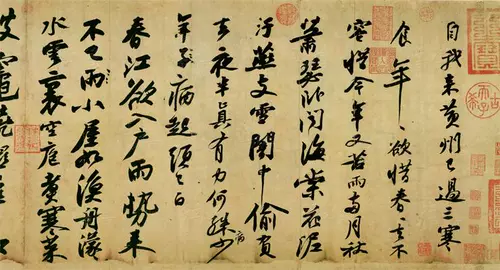 自我來黃州已過三寒
食年〻欲惜春〻去不
容惜今年又苦雨兩月秋
蕭瑟臥聞海棠花泥
汙燕支雪闇中偷負
去夜半真有力何殊少
病
年子病起頭已白
春江欲入戶雨勢來
不已雨小屋如漁舟濛〻
水雲裏空庖煮寒菜
破竈燒濕